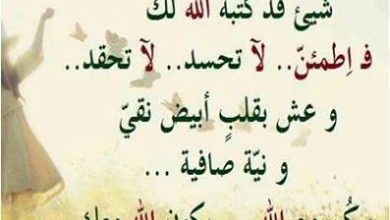 شيئ قد كتبه الله لك
ف اِطمئنّ.. لآ تحسد.. لآ تحقد..
و عش بقلبٍ أبيض نقيّ
و نيّة صافية ...
الله الله